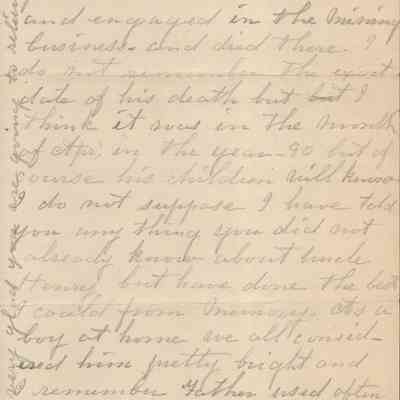 and engaged in the mining
business and died there. I
do not remember the exact
date of his death but but I
think it was in the month
of Apr. in the year -90 but of
ourse his children will know
I do not suppose I have told
you any thing you did not
already know about Uncle
Henry but have done the best
I could from memory. As a
boy at home we all consid-
ered him pretty bright and
I remember Father used often
very glad you are going to